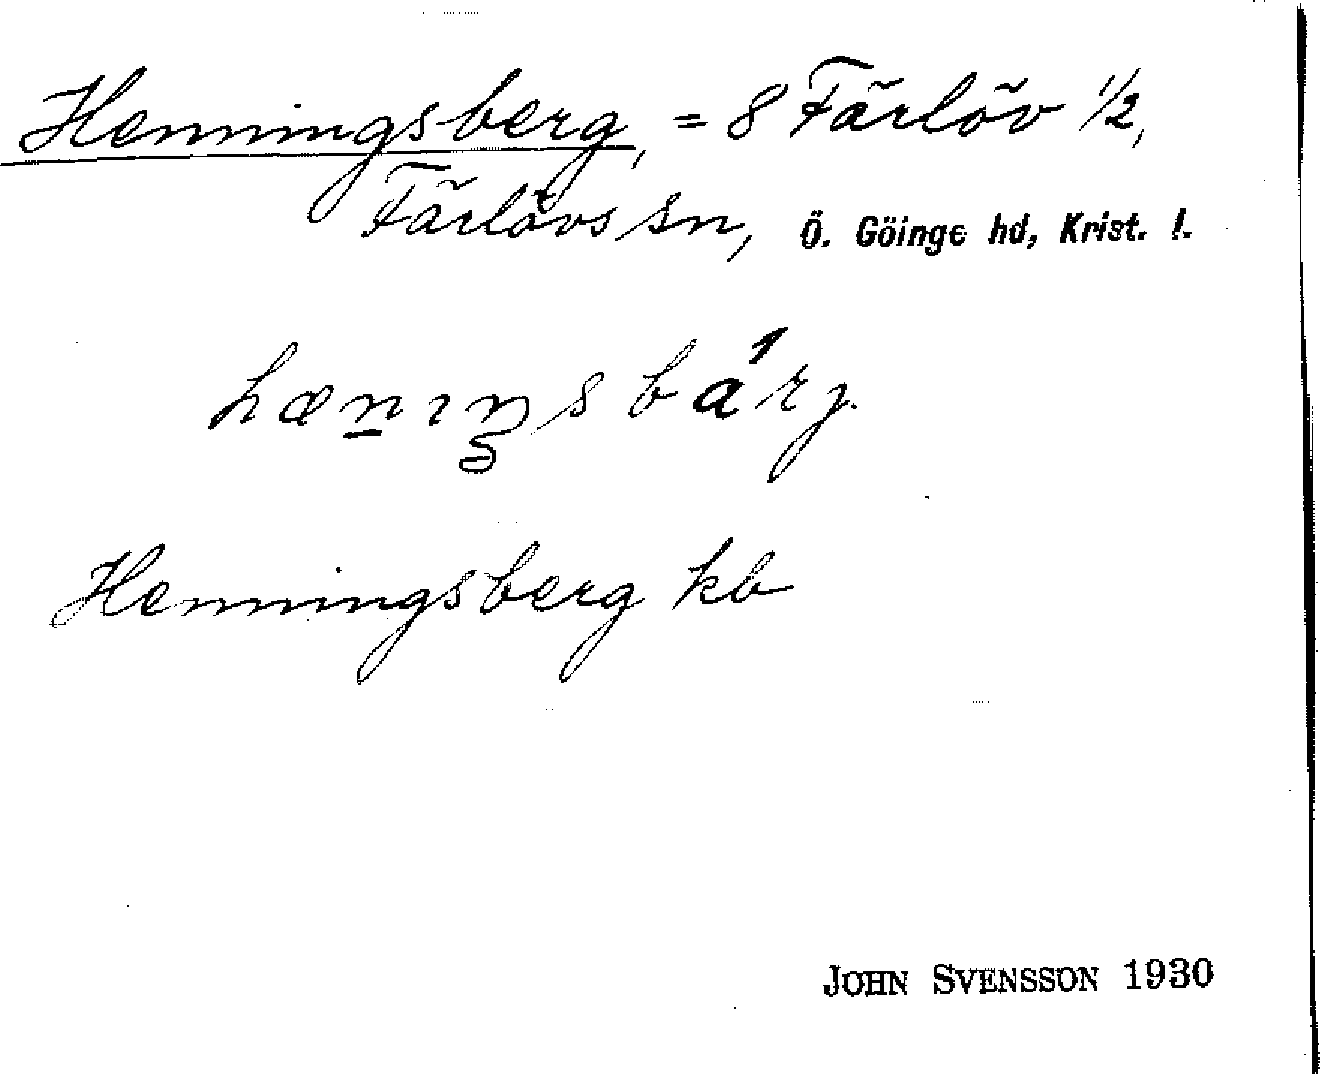 Henningsberg, = 8 Färlöv 1/2,
Färlövs sn, Ö. Göinge hd, Krist. l.
Henningsberg kb
JOHN SVENSSON 1930